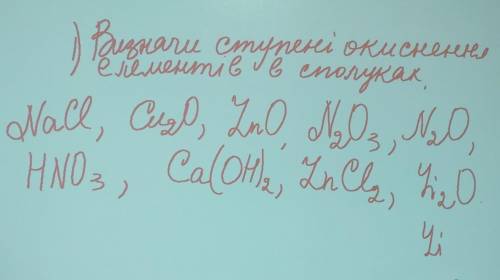 1) Визначи ступені окиснення
елементів в сполуках.
NaCl, Cu₂O, ZnO, N₂O₃, N₂O,
HNO₃, Ca(OH)₂, ZnCl₂, Li₂O
Li